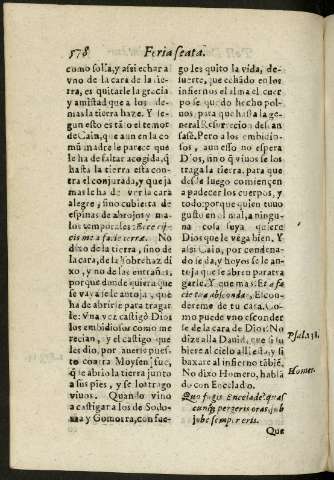 578 Feria sexta.
como solia, y assi echar al
vno de la cara de la tie-
rra, es quitarle la grecia
y amistad que a los de-
mas la tierra haze. Y se-
gun esto es tãto el temor
de Cain, que aun en la co-
mũ madre le parece que
le ha de faltar acogida, q̃
hasta la tierra esta con-
tra el conjurada, y que ja
mas le ha de ver la cara
alegre, sino cubierta de
espinas de abrojos y ma-
los temporales: Ecce eij-
cis me a facie terræ. No
dixo de la tierra, sino de
la cara, de la sobrehaz di
xo, y no de las entrañas,
porque donde quiera que
se vaya se le antoja, que
ha de abrirse para tragar
le: Vna vez castigò Dios
los embidiosos como me
recian, y el castigo que
les dio, por auerse pues-
to contra Moysen fue,
q̃ se abrio la tierra junto
a sus pies, y se los trago
viuos. Quando vino
a castigar a los de Sodo-
ma y Gomorra, con fue-
go les quito la vida, de-
suerte, que echãdo en los
infiernos el alma el cuer-
po se quedo hecho pol-
uos, para que hasta la ge-
neral Resurrecion descan
sasse. Pero a los embidio-
sos, aun esso no espera
Dios, sino q̃ viuos se los
traga la tierra, para que
desde luego comiencen
a padecer los cuerpos, y
todo: porque quien tiuuo
gusto en el mal, a ningu-
na cosa suya quiere
Dios que le vẽga bien. Y
assi Cain, por condena-
do se da, y ho yo se le an-
toja que se abre para tra
garle. Y que mas: Et a fa-
cie tua abscondar, Escon-
dereme de tu cara. Co-
mo puede vno esconder
se de la cara de Dios: No
dize alla Dauid, que si su
biere al cielo alli està, y si
baxare al infierno tãbiẽ,
No dixo Homero, habla
do con Encelado.
Quo fugis Encelade? quas
cunq; pergeris oras, sub
Ioue semper eris.
Que
Psal. 138.
Homer.